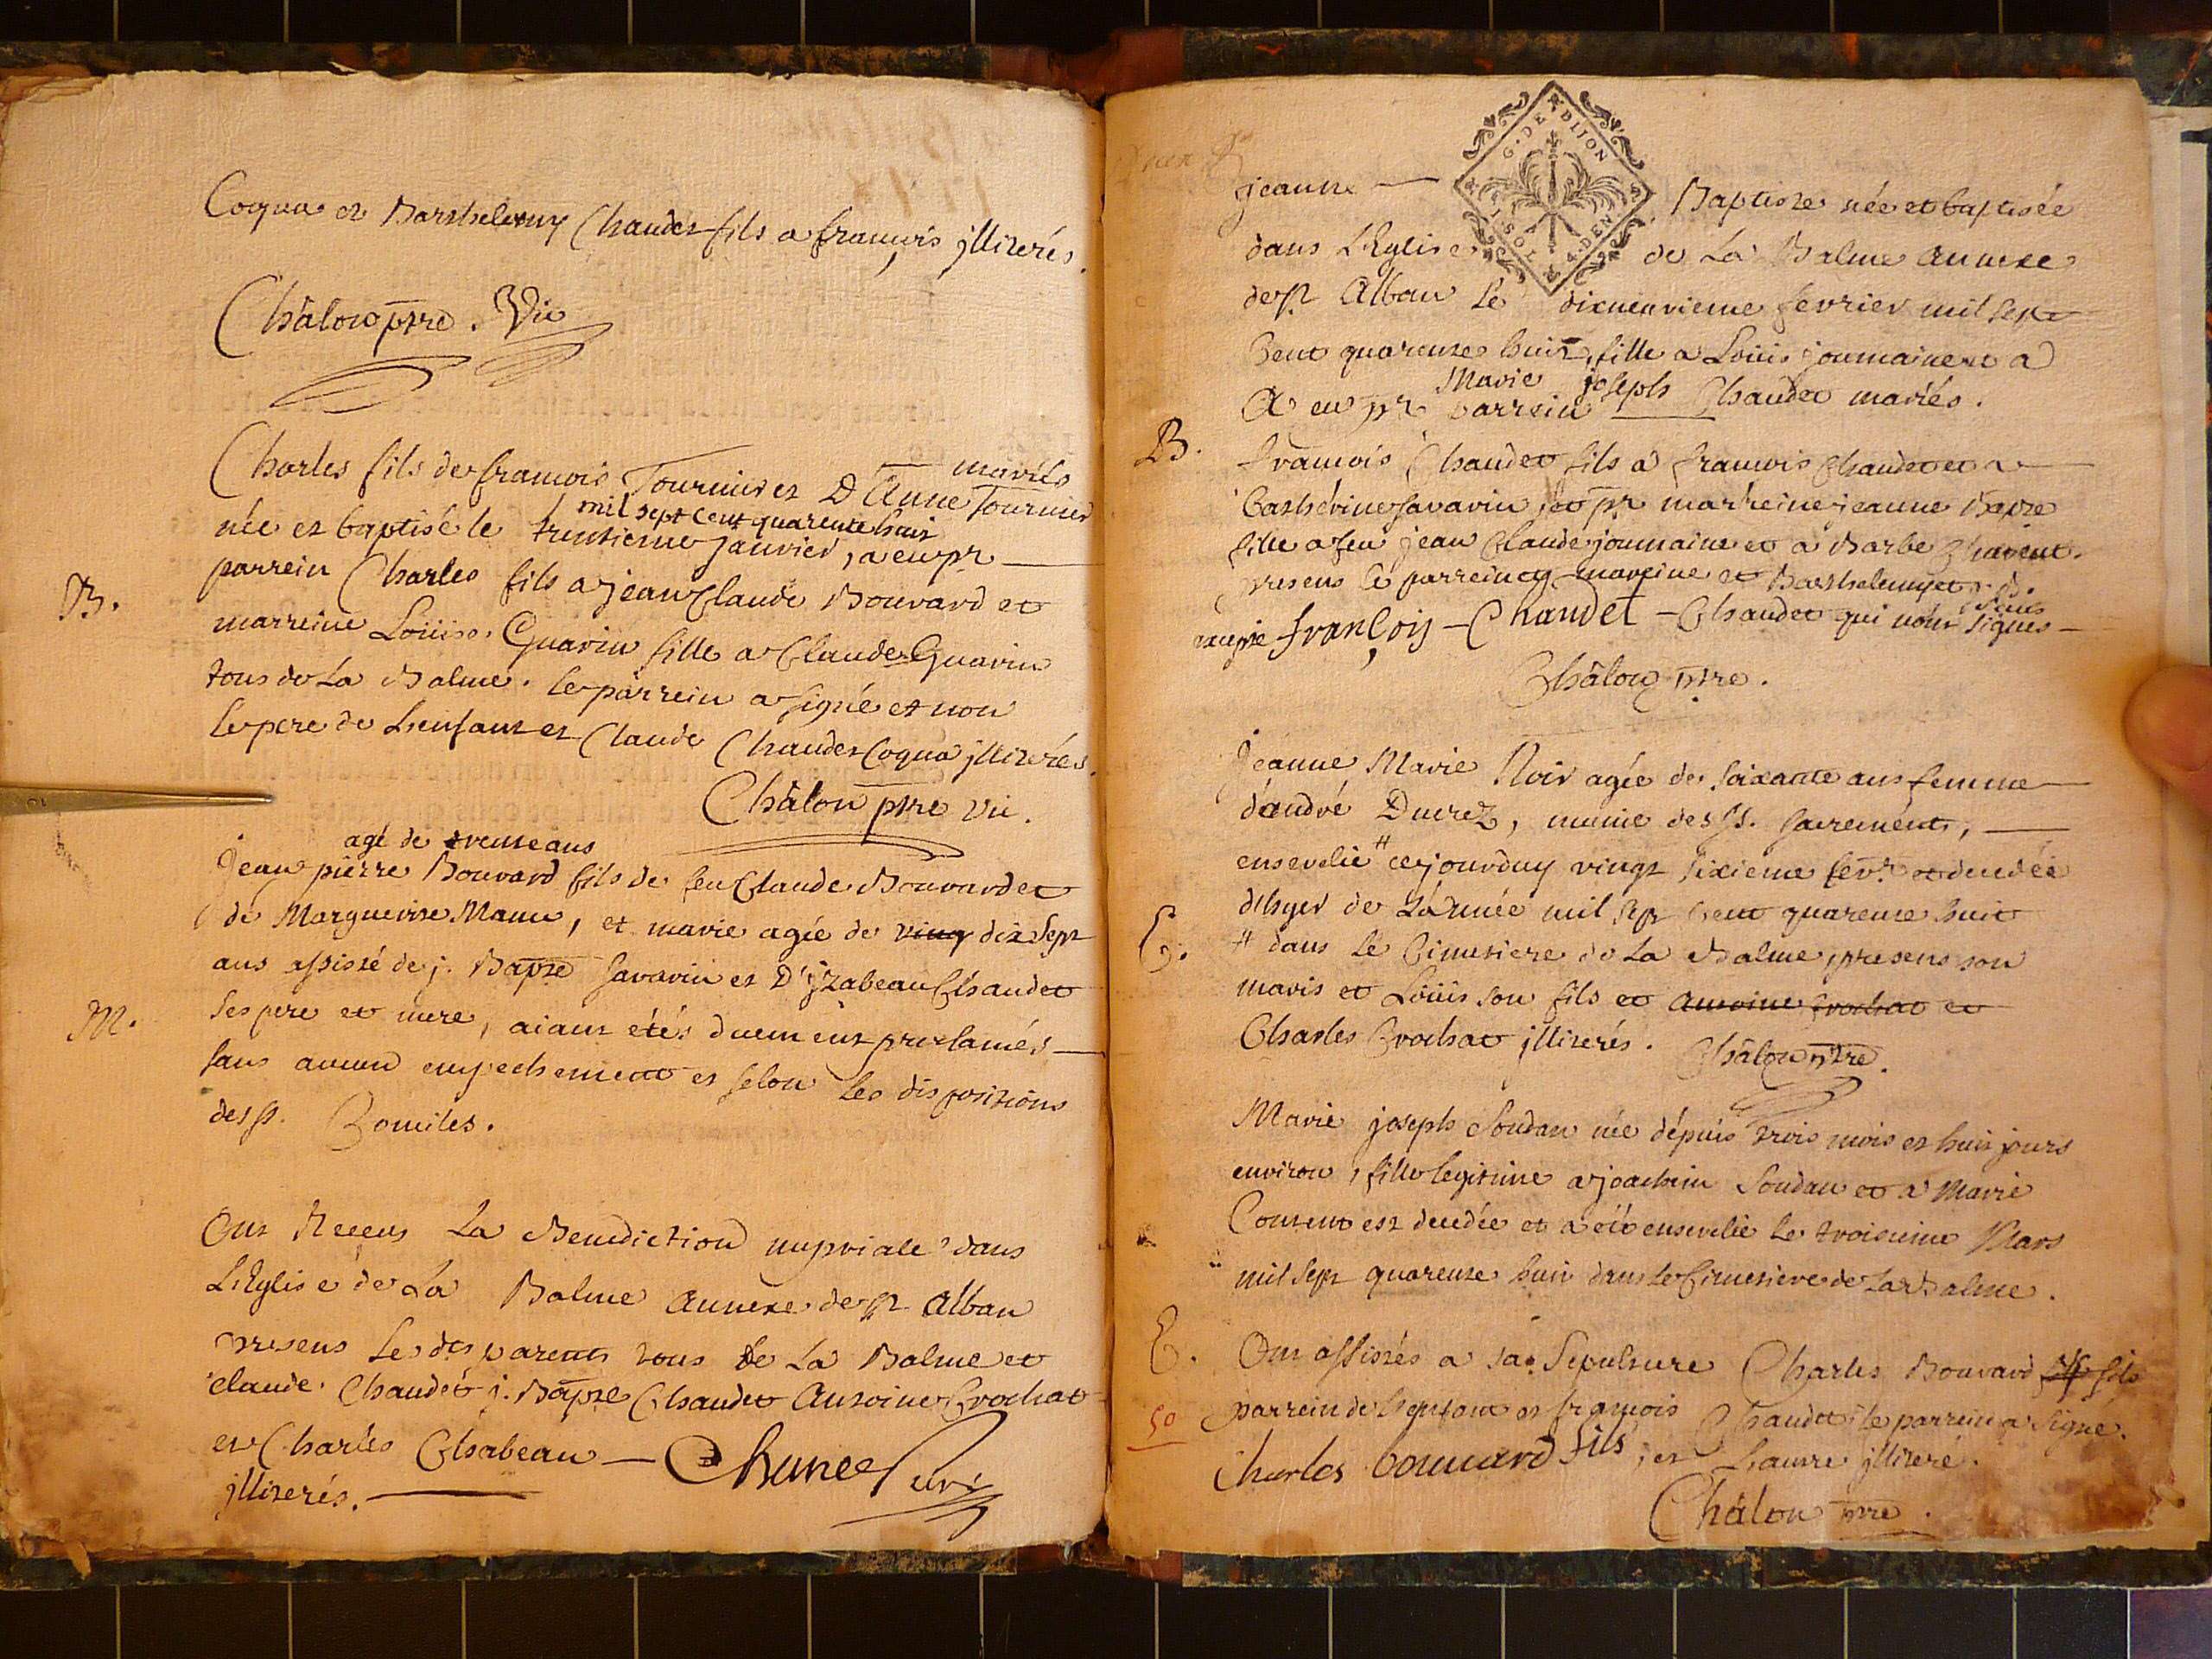 Coqua et Barthelemy Chaudet fils a françois jllitérés.
Châlon ptre. Vic
Charles fils de françois Tournier et D'Anne Tournier
mariés
née et baptisé le trentieme janvier, a eu pr
mil sept cent quarente huit
parrein Charles fils a jean Claude Bouvard et
B.
marreine Loüise Guarin fille a Claude Guarin
tous de La Balme. le parrein a signé et non
le pere de L'enfant et Claude Chaudet Coqua jllitérés.
Châlon ptre vic.
agé de trente ans
Jean pierre Bouvard fils de feu Claude Bouvard et
de Marguerite Mame, et marie agée de ving dix sept
ans assisté de j. Bapte Savarin et D'jzabeau Chaudet
M.
ses pere et mere, aiant étés duement proclamés
sans aucun empechement et selon les dispositions
des Sts. Conciles.
Ont Reçus La Benediction nuptiale dans
L'Eglise de La Balme annexe de St Alban
presens les dts parents tous de La Balme et
claude Chaudet j. Bapte Chaudet Antoine Crochat
et Charles Chabeau
jllitérés.
G. DE DIJON
4. DEN.
1. SOL
jeanne Baptiste née et baptisée
dans L'Eglise de La Balme annexe
de St Alban Le dixneuvieme fevrier mil sept
Cent quarente huit, fille a Loüis joumain et a
Marie joseph Chaudet mariés.
A eu pr parrein
B.
françois Chaudet fils a françois Chaudet et a
Catherine Savarin, et pr marreine jeanne Bapte
fille a feu jean Claude joumain et a Barbe
presens le parrein et mareine et Barthelemy et j. B.
françois Chandet Chaudet qui n'ont signes
Châlon ptre.
Jeanne Marie Noir agée de soixante ans femme
d'andré Ducrez, munie des Sts. sacrements,
ensevelie # ce jourduy vingt sixieme fevr. et decedée
d'hyer de L'année mil sept Cent quarente huit
E.
# dans le Cimetiere de La Balme, presens son
maris et Loüis son fils et Antoine Crochat et
Charles Crochat jllitérés. Châlon ptre.
Marie joseph Soudan née dépuis trois mois et huit jours
environ, fille legitime a joachim Soudan et a Marie
Couteut est decedée et a été ensevelie le troisieme Mars
mil sept quarente huit dans le Cimetiere de La Balme.
E.
Ont assistés a sa Sepulture Charles Bouvard fils
parrein de L'enfant et françois Chaudet le parrein a signé.
50
Charles bouuard fils, et L'autre jlliteré.
Châlon ptre.